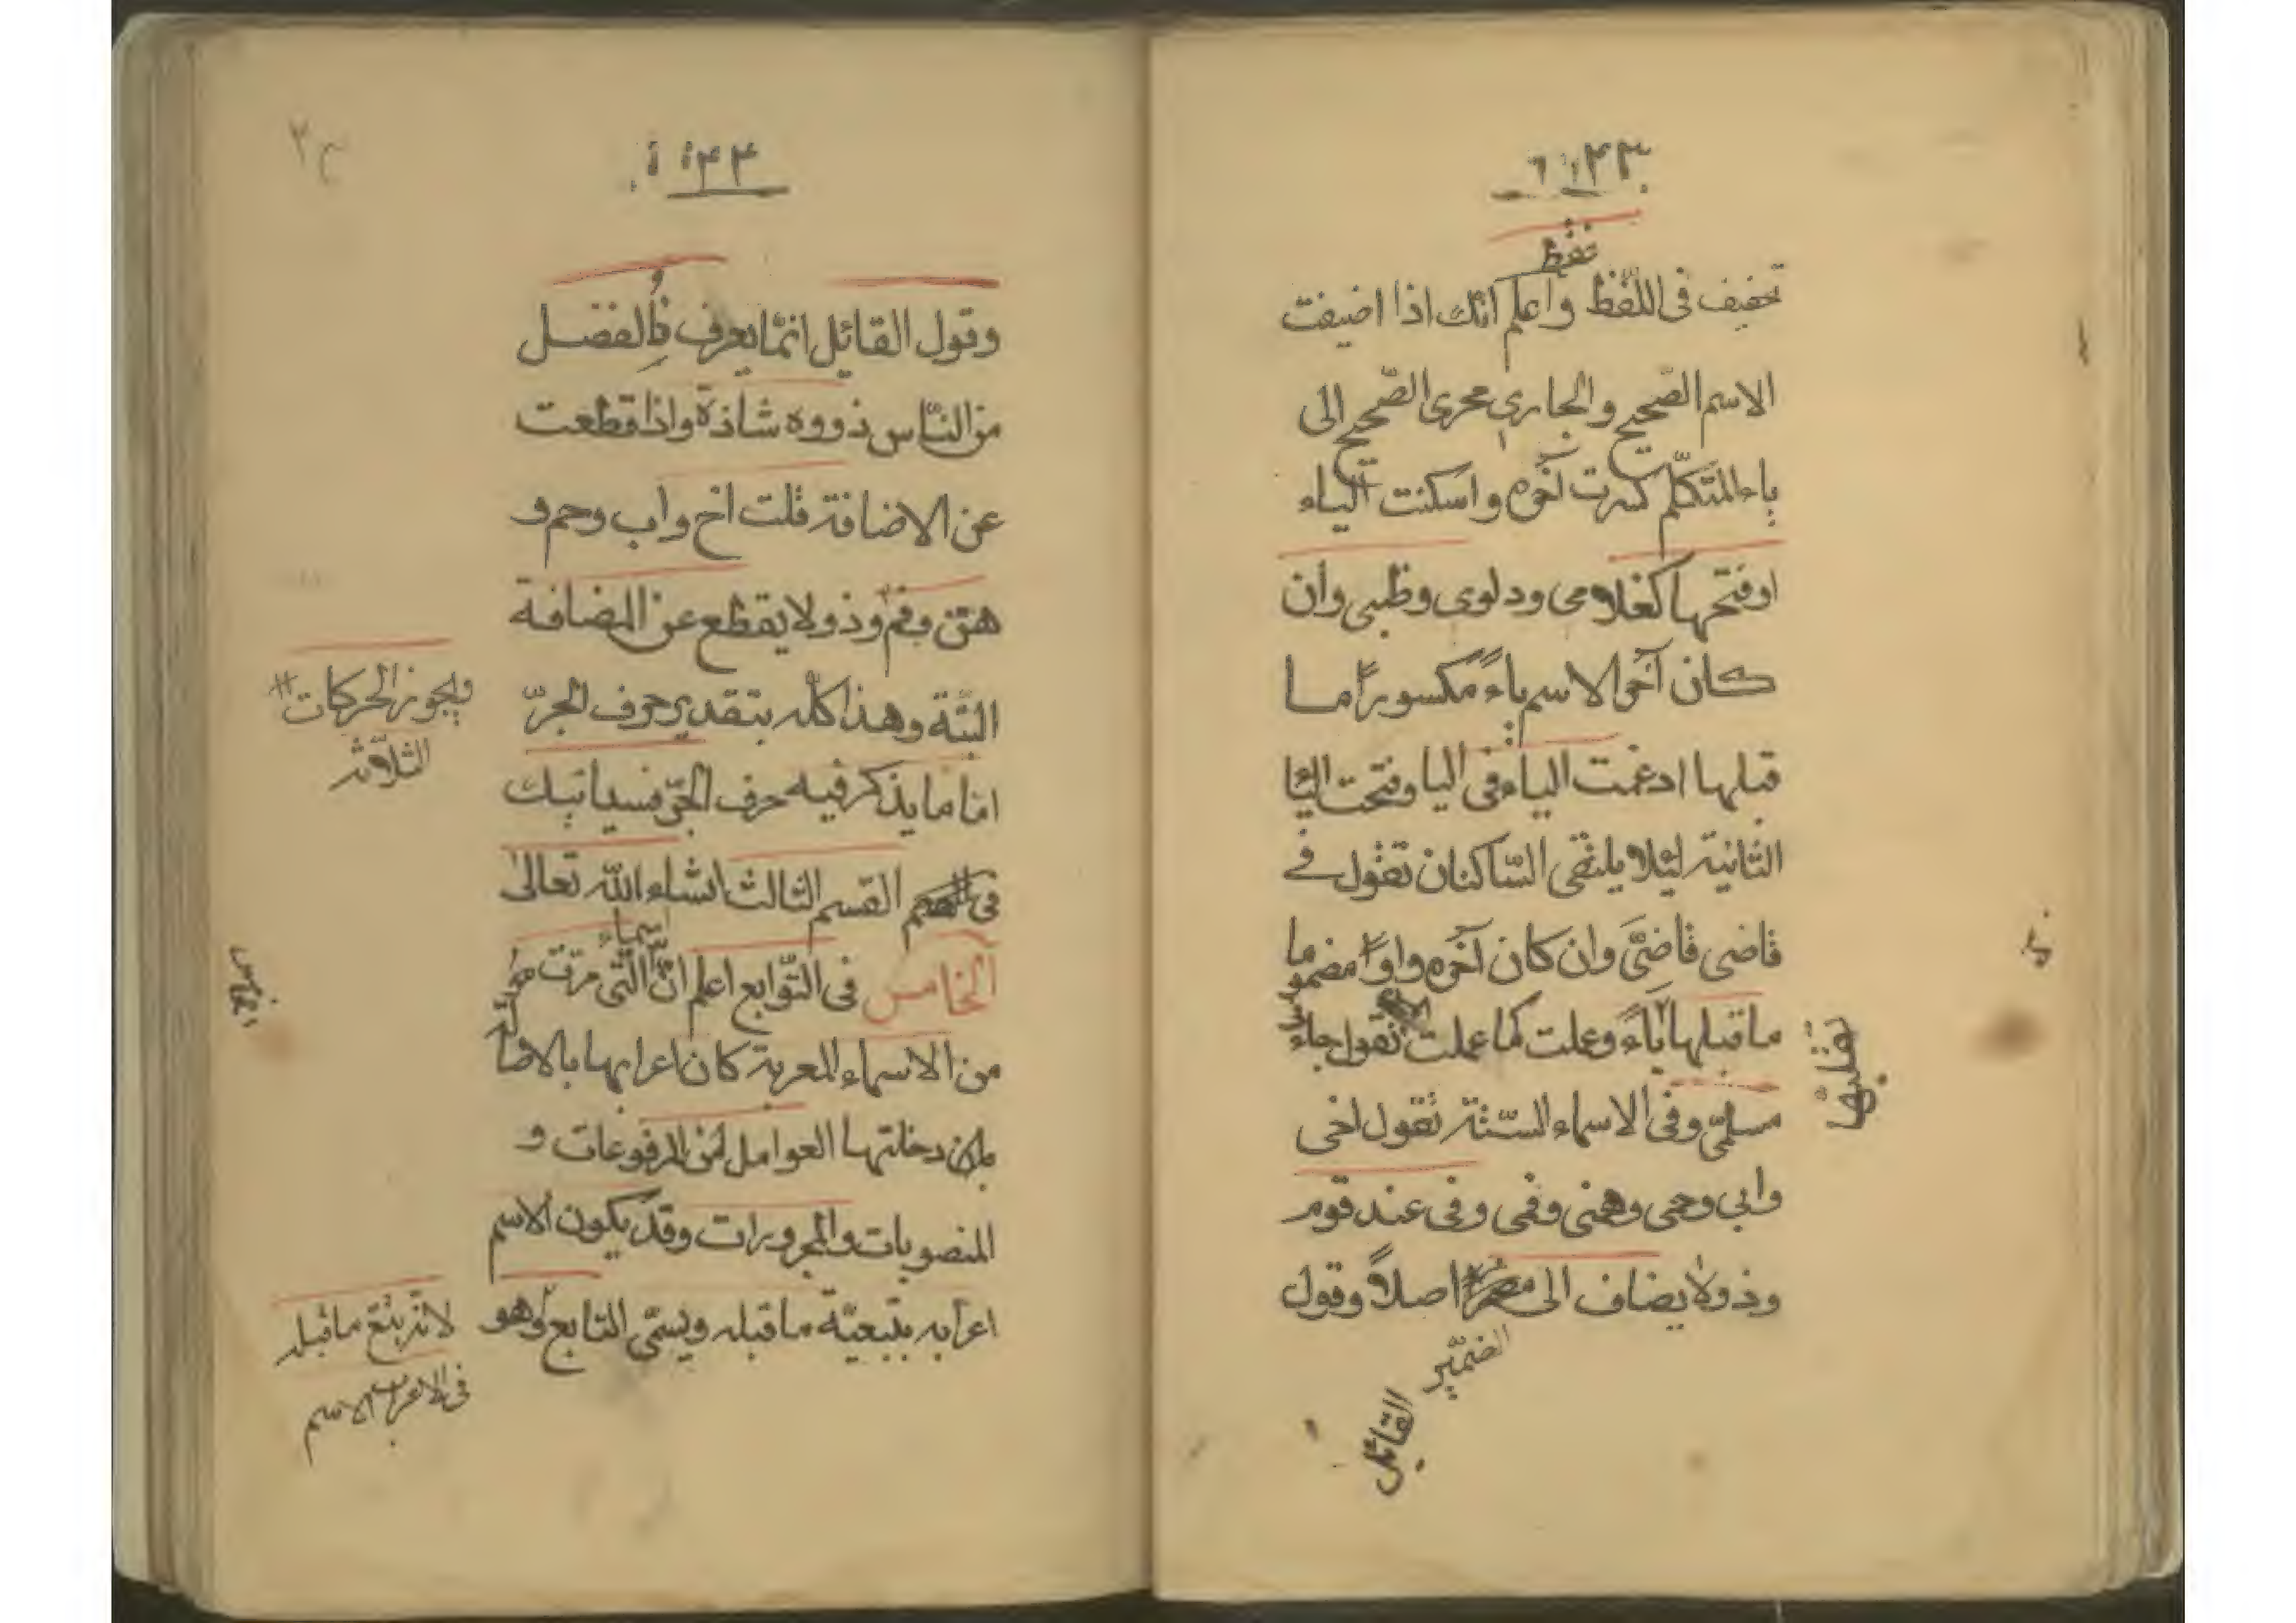 ۴۳
فقط
تخفيف فى اللّفظ واعلم انّك اذا اضيفت
الاسم الصّحيح والجارى مجرى الصّحيح الى
ياء المتكلّم كسرت آخره واسكنت الياء
اوفتحها كغلامى ودلوى وظبى وان
كان آخر الاسم ياءً مكسوراً ما
قبلها ادغمت الياء فى اليا وفتحت اليا
الثانية لئلا يلتقى السّاكنان تقول فى
قاضى قاضىَّ وان كان آخره واواً مضموما
ما قبلها ياءً وعلت كما علمت تقول جاء
تقلبها
مسلمىّ وفى الاسماء السّتّة تقول اخى
وابى وحمى وهنى وفمى وفى عند قوم
وذو لا يضاف الى مضمر اصلاً وقول
الضمير
القائل
۴۴
وقول القائل انّما يعرف ذا الفضل
من النّاس ذووه شاذة واذا قطعت
عن الاضافة قلت اخ واب وحم و
هن وفم وذو لا يقطع عن المضافة
البتّة وهذا كلّه بتقدير حرف الجرّ
ويجوز الحركات
الثلاثة
امّا ما يذكر فيه حرف الجرّ فسيأتيك
فى القسم الثالث انشاء الله تعالى
اسماء
الخامس فى التّوابع اعلم انّ الّتى مرّت
من الاسماء المعربة كان اعرابها بالاصا
لة
بان دخلتها العوامل من المرفوعات و
المنصوبات والمجرورات وقد يكون الاسم
اعرابه بتبعيّة ما قبله ويسمّى التابع وهو
لانّه يتبع ما قبله
فى الاعراب الاسم